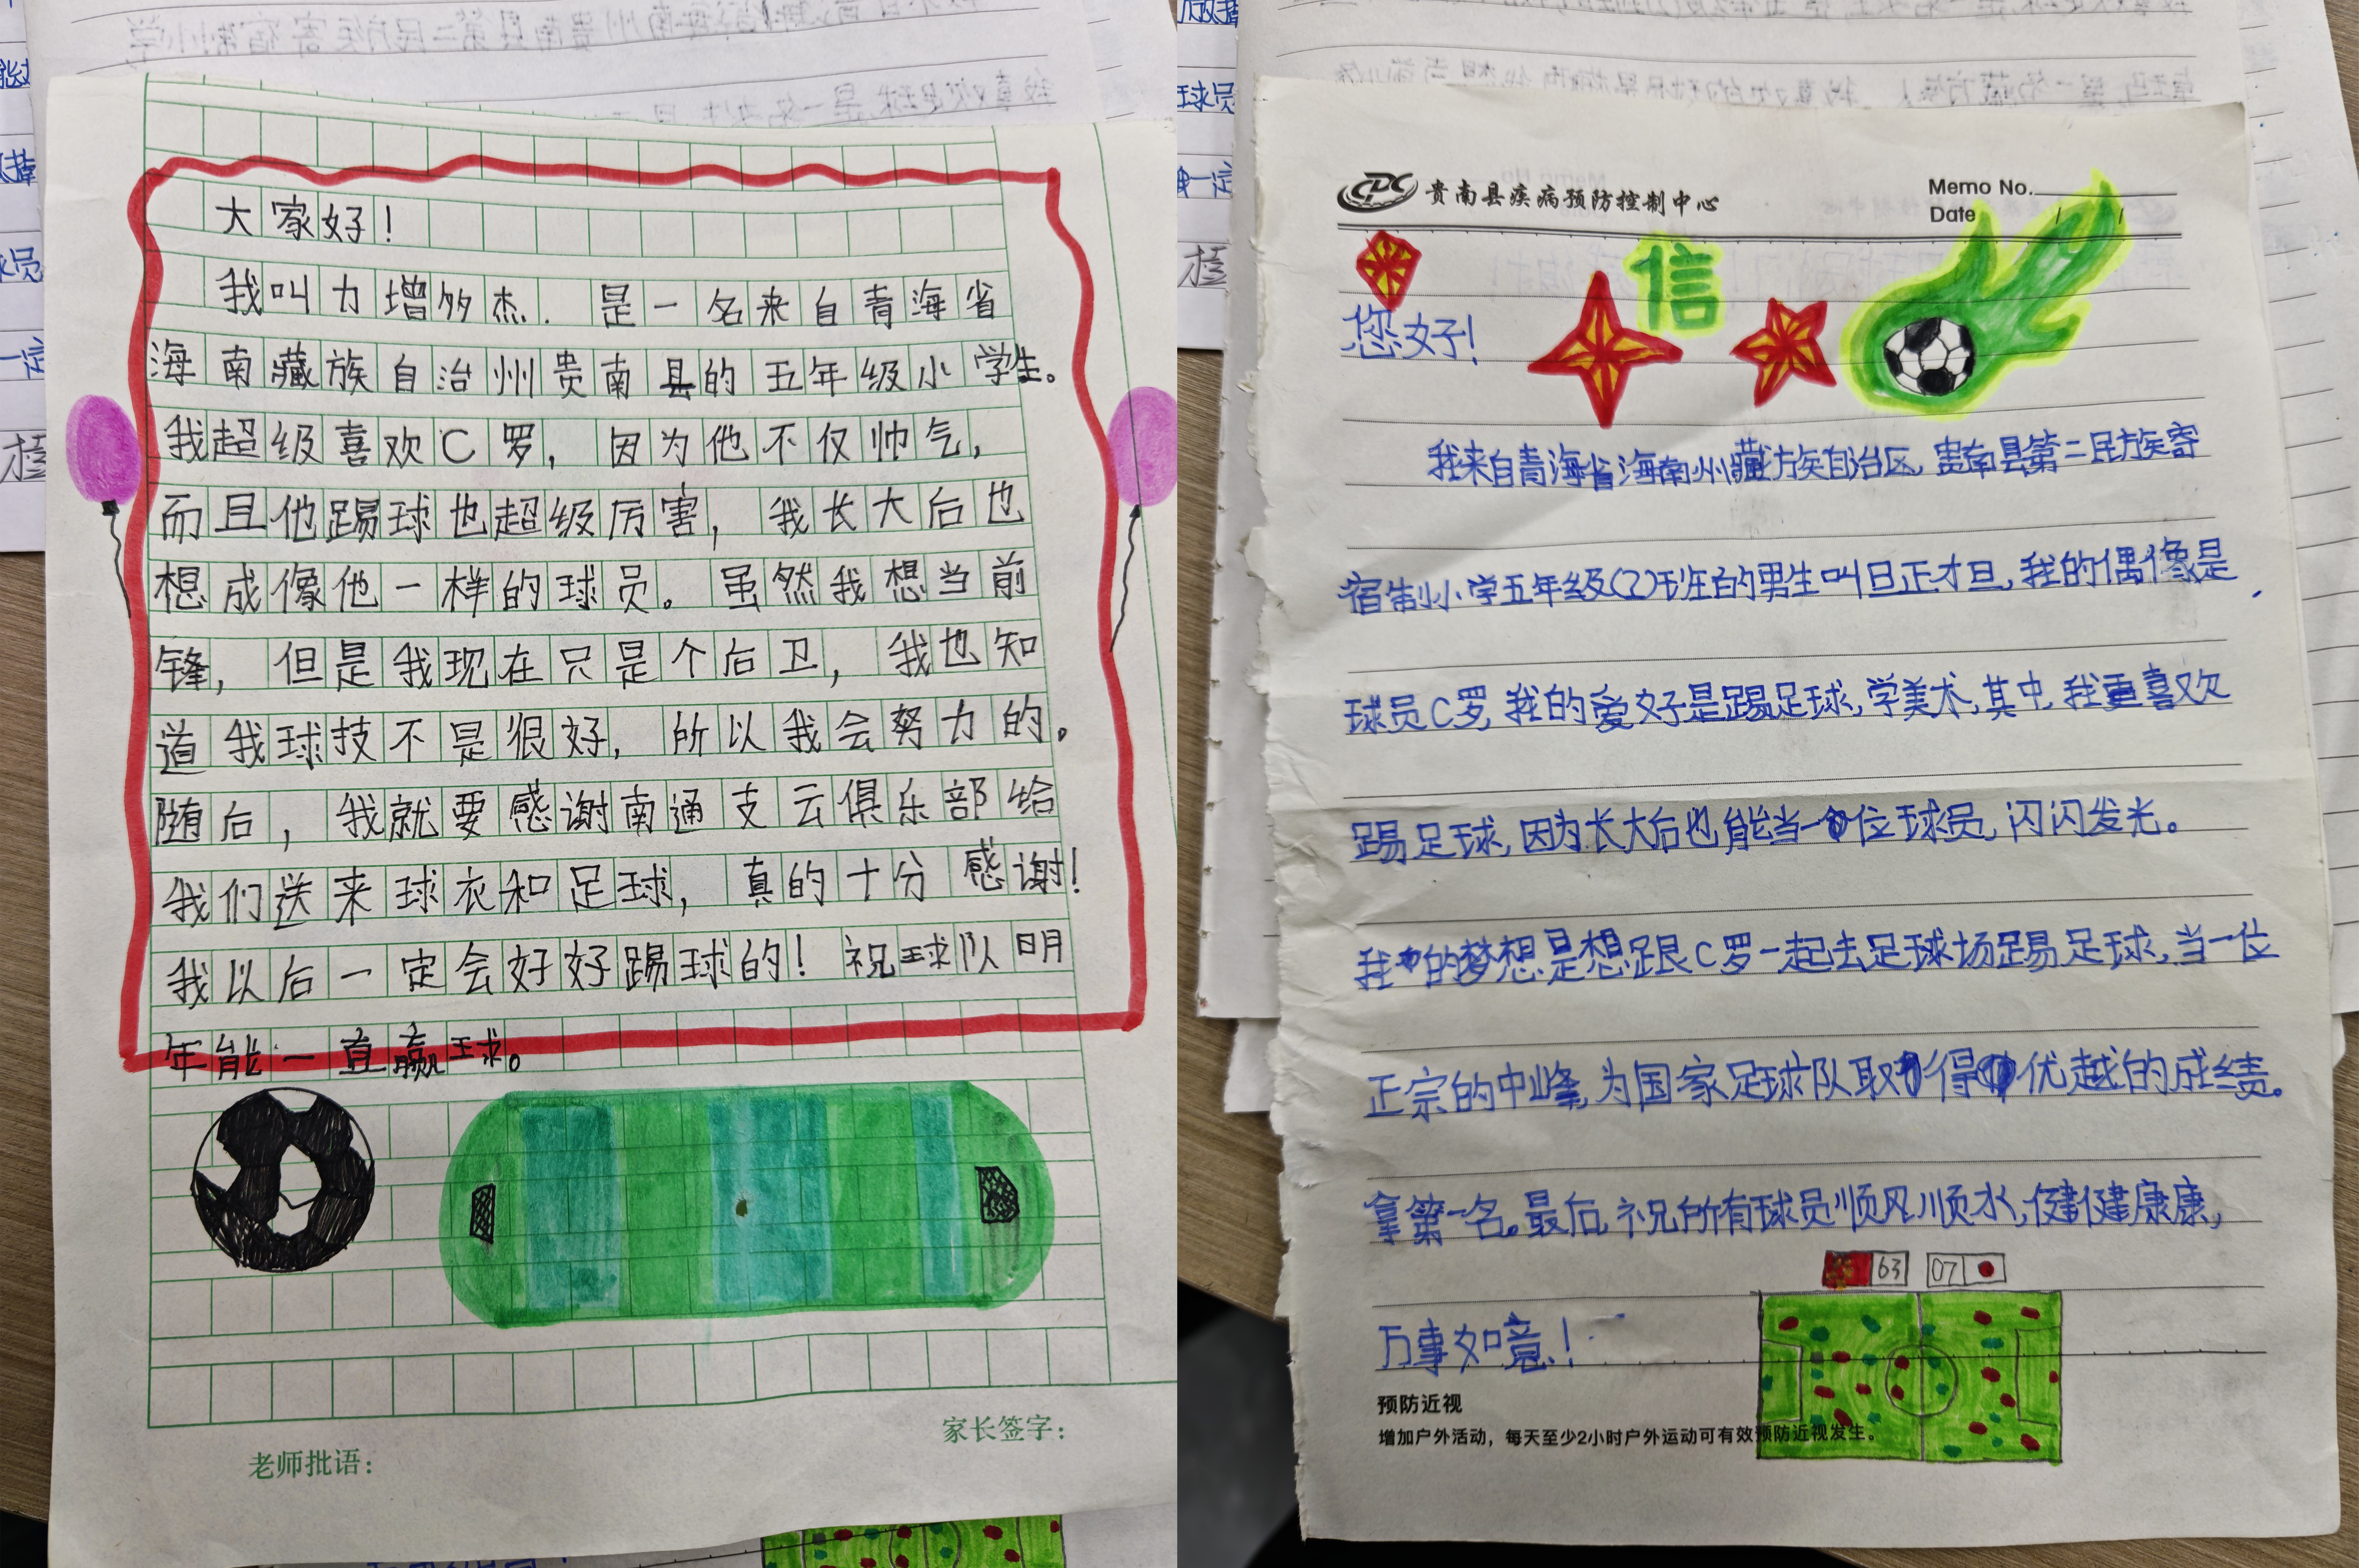 大家好！
我叫力增多杰．是一名来自青海省
海南藏族自治州贵南县的五年级小学生。
我超级喜欢C罗，因为他不仅帅气，
而且他踢球也超级厉害，我长大后也
想成像他一样的球员。虽然我想当前
锋，但是我现在只是个后卫，我也知
道我球技不是很好，所以我会努力的。
随后，我就要感谢南通支云俱乐部给
我们送来球衣和足球，真的十分感谢！
我以后一定会好好踢球的！祝球队明
年能一直赢球。
老师批语：
家长签字：
CDC 贵南县疾病预防控制中心
Memo No.
Date / /
信
您好！
我来自青海省海南州藏族自治区，贵南县第二民族寄
宿制小学五年级(2)班的男生叫旦正才旦，我的偶像是
球员C罗，我的爱好是踢足球，学美术，其中，我重喜欢
踢足球，因为长大后也能当一位球员，闪闪发光。
我的梦想是想跟C罗一起去足球场踢足球，当一位
正宗的中峰，为国家足球队取得优越的成绩。
拿第一名。最后，祝所有球员顺风顺水，健健康康，
63 07
万事如意！
预防近视
增加户外活动，每天至少2小时户外运动可有效预防近视发生。